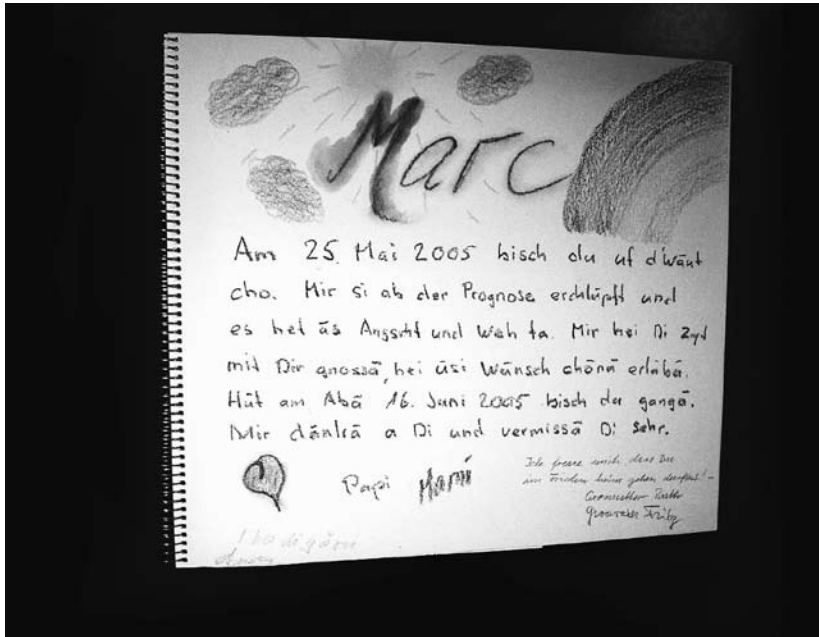 Marc
Am 25. Mai 2005 bisch du uf d'Wäut
cho. Mir si ab der Prognose erchlüpft und
es het üs Angscht und Weh ta. Mir hei Di Zyt
mit Dir gnossä, hei üsi Wünsch chönä erläbä.
Hüt am Abä 16. Juni 2005 bisch du gangä.
Mir dänkä a Di und vermissä Di sehr.
Papi Mami
Ich freue mich, dass Du
im Frieden heim gehen durftest! –
Grossmutter
Grossvater
I ha di gärn